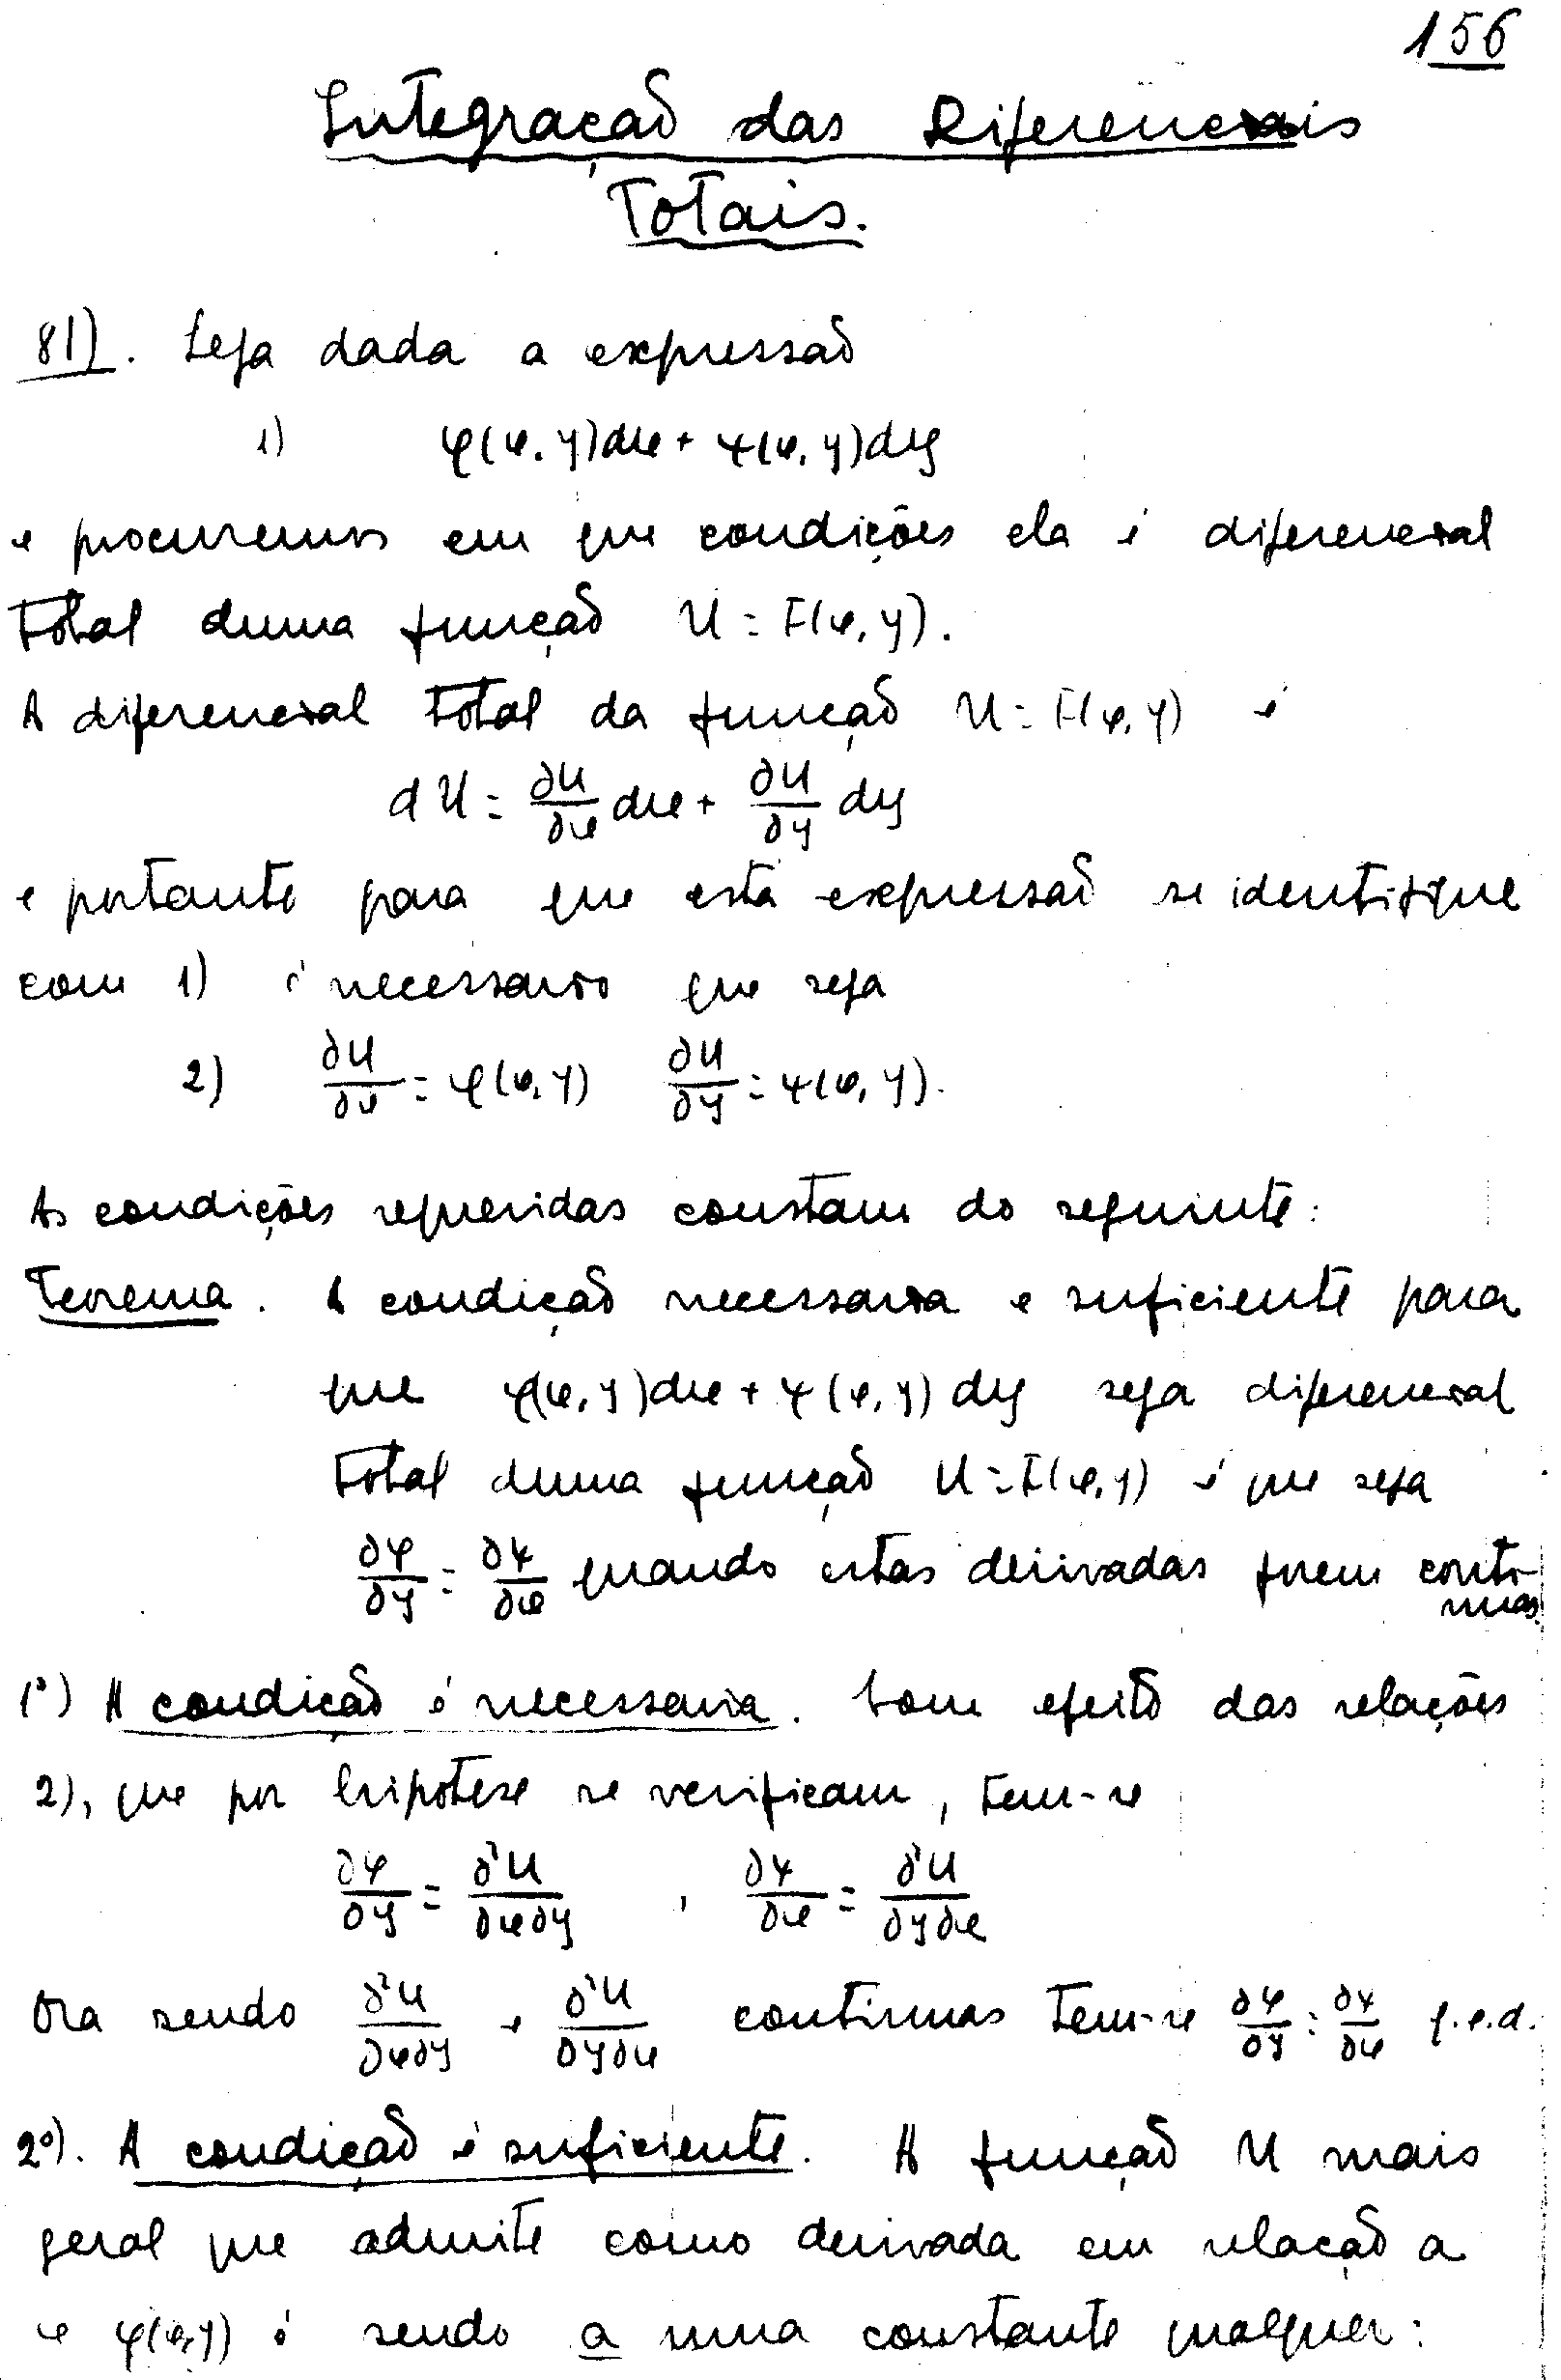 156
Integração das Diferenciais
Totais.
81). Seja dada a expressão
1) φ(x, y)dx + ψ(x, y)dy
e procuremos em que condições ela é diferencial
total duma função U = F(x, y).
A diferencial total da função U = F(x, y) é
dU = ∂U/∂x dx + ∂U/∂y dy
e portanto para que esta expressão se identifique
com 1) é necessario que seja
2) ∂U/∂x = φ(x, y) ∂U/∂y = ψ(x, y).
As condições requeridas constam do seguinte:
Teorema. A condição necessaria e suficiente para
que φ(x, y)dx + ψ(x, y) dy seja diferencial
total duma função U = F(x, y) é que seja
∂φ/∂y = ∂ψ/∂x quando estas derivadas forem conti-
nuas.
1º) A condição é necessaria. Com efeito das relações
2), que por hipotese se verificam, tem-se
∂φ/∂y = ∂²U/∂x∂y , ∂ψ/∂x = ∂²U/∂y∂x
Ora sendo ∂²U/∂x∂y e ∂²U/∂y∂x continuas tem-se ∂φ/∂y = ∂ψ/∂x q.e.d.
2º). A condição é suficiente. A função U mais
geral que admite como derivada em relação a
x φ(x, y) é sendo a uma constante qualquer: